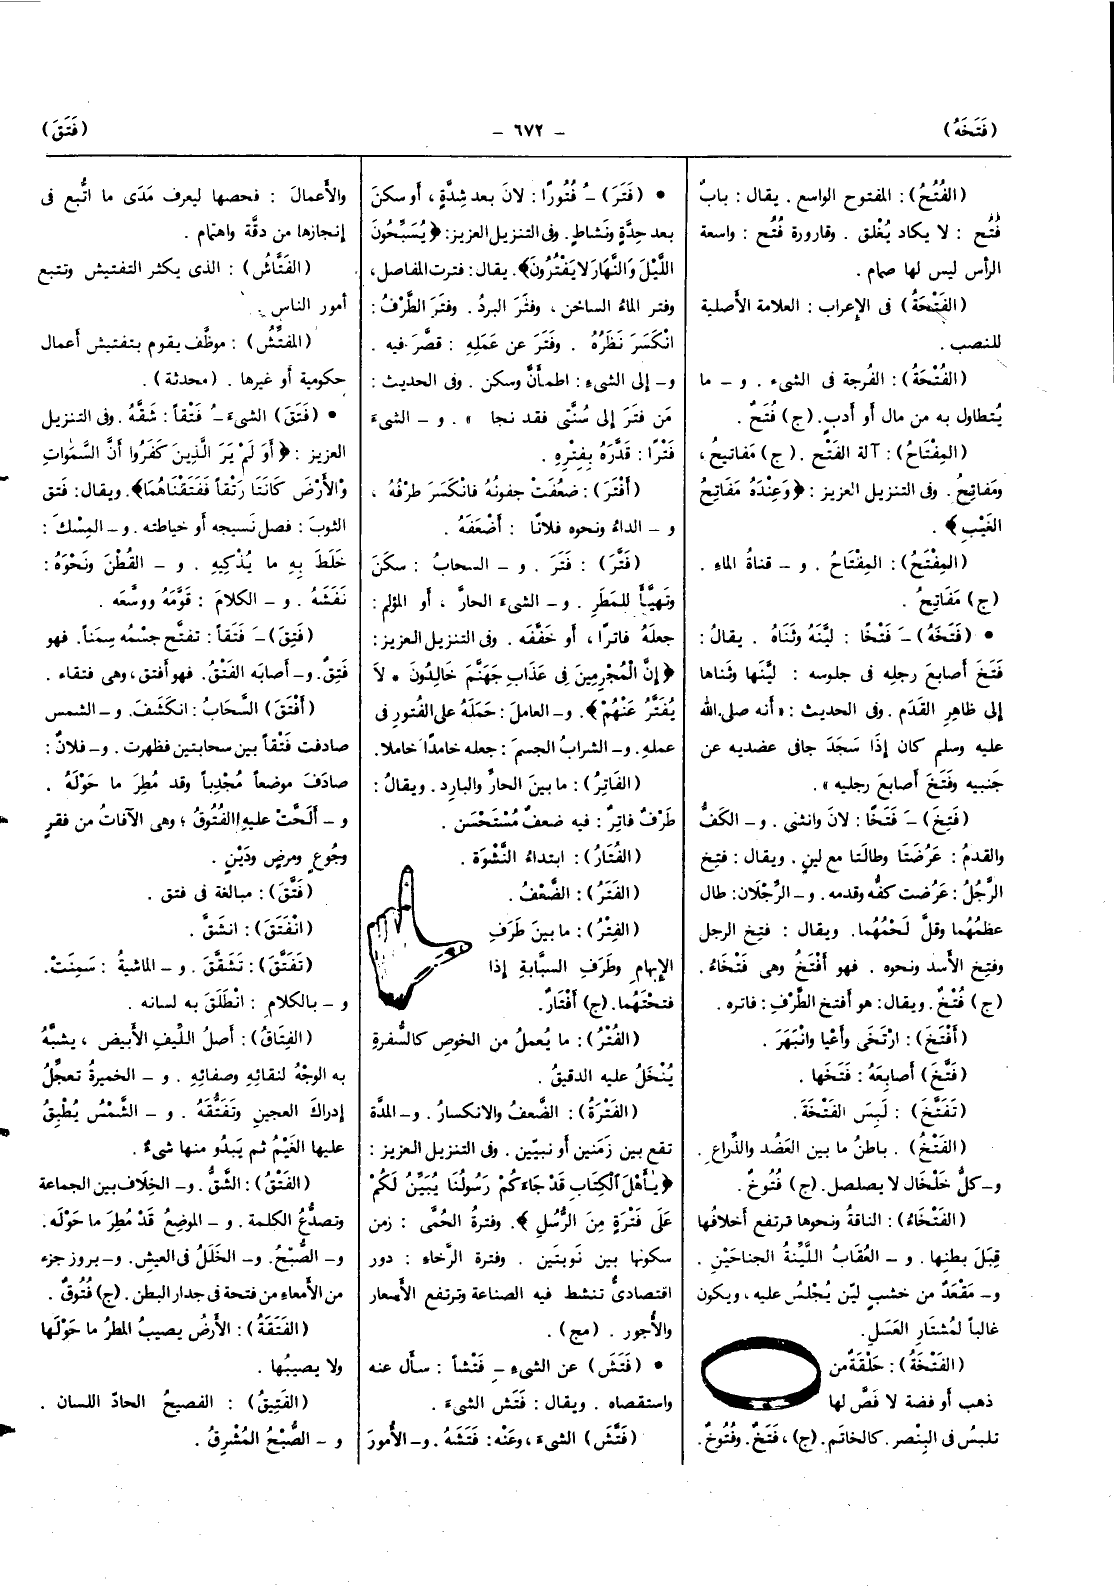 (فَتَخَهُ)
– ٦٧٢ –
(فَتَقَ)
(الفُتُحُ): المفتوح الواسع . يقال: بابٌ
فُتُح : لا يكاد يُغْلق . وقارورة فُتُح : واسعة
الرأس ليس لها صمام .
(الفَتْحَةُ) فى الإعراب : العلامة الأصلية
للنصب .
(الفُتْحَةُ): الفُرجة فى الشىء . و – ما
يُتطاول به من مال أو أدبٍ. (ج) فُتَحٌ .
(المِفْتَاحُ): آلة الفَتْح . (ج) مَفاتيحُ ،
ومَفاتِحُ . وفى التنزيل العزيز : ﴿وَعِنْدَهُ مَفَاتِحُ
الغَيْبِ﴾ .
(المِفْتَحُ): المِفْتَاحُ . و – قناةُ الماءِ .
(ج) مَفَاتِحُ .
• (فَتَخَهُ) –َ فَتْخًا : ليَّنَهُ وثَناهُ . يقالُ :
فَتَخَ أصابعَ رجلِه فى جلوسه : ليَّنَها وثناها
إلى ظاهرِ القدَم . وفى الحديث : « أنه صلى الله
عليه وسلم كان إذَا سَجَدَ جافى عضديه عن
جَنبيه وفَتَخَ أصابعَ رجليه » .
(فَتِخَ) –َ فَتَخًا : لانَ وانثنى . و – الكَفُّ
والقدمُ : عَرُضَتَا وطالَتا مع لينٍ . ويقال : فتِخ
الرَّجُلُ : عَرُضت كفُّه وقدمه . و – الرِّجْلَان: طال
عظمُهُما وقلَّ لَحْمُهُما. ويقال : فتِخ الرجل
وفتِخ الأسد ونحوه . فهو أَفْتَخُ وهى فَتْخَاءُ .
(ج) فُتْخٌ . ويقال: هو أفتخ الطَّرْفِ: فاتره .
(أَفْتَخَ) : ارْتَخَى وأَعْيا وانْبَهَرَ .
(فَتَّخَ) أصابعَهُ : فَتَخَها .
(تَفَتَّخَ) : لَبِسَ الفَتْخَةَ .
(الفَتْخُ) . باطنُ ما بين العَضُد والذِّراعِ .
و – كلُّ خَلْخَال لا يصلصل. (ج) فُتُوخٌ .
(الفَتْخَاءُ): الناقةُ ونحوها ترتفع أخلافُها
قِبَلَ بطنِها . و – العُقابُ اللَّيِّنةُ الجناحَيْنِ .
و – مَقْعَدٌ من خشبٍ ليّن يُجْلسُ عليه ، ويكون
غالباً لمُشتَارِ العَسَلِ .
(الفَتْخَةُ) : حَلْقَةٌ من
ذهب أو فضة لا فَصَّ لها
تلبسُ فى البِنْصر . كالخاتَم . (ج) ، فَتَخٌ . وفُتُوخٌ .
• (فَتَرَ) –ُ فُتُورًا : لانَ بعد شِدَّةٍ ، أو سكنَ
بعد حِدَّةٍ ونَشاطٍ. وفى التنزيل العزيز: ﴿ يُسَبِّحُونَ
اللَّيْلَ وَالنَّهَارَ لَا يَفْتُرُونَ﴾. يقال : فترت المفاصل ،
وفتر الماءُ الساخن ، وفتَرَ البردُ . وفتَرَ الطَّرْفُ :
انْكَسَرَ نَظَرُهُ . وفتَرَ عن عَمَلِهِ : قصَّرَ فيه .
و – إلى الشىءِ : اطمأنَّ وسكن . وفى الحديث :
مَن فترَ إلى سُنَّتى فقد نجا » . و – الشىءَ
فَتْرًا : قدَّرَهُ بِفِتْرِهِ .
(أَفْتَرَ) : ضعُفَتْ جفونُهُ فانْكَسَرَ طرْفُهُ ،
و – الداءُ ونحوه فلانًا : أَضْعَفَهُ .
(فَتَّرَ) : فَتَرَ . و – السحابُ : سكنَ
وتهيَّأَ للمَطَرِ . و – الشىءَ الحارَّ ، أو المؤلم :
جعلَهُ فاترًا ، أو خَفَّفَه . وفى التنزيل العزيز:
﴿ إِنَّ الْمُجْرِمِينَ فِى عَذَابِ جَهَنَّمَ خَالِدُونَ • لَا
يُفَتَّرُ عَنْهُمْ﴾. و – العاملَ : حَمَلَهُ على الفُتور فى
عمله. و – الشرابُ الجسمَ : جعله خامدًا خاملا.
(الفَاتِرُ) : ما بينَ الحارِّ والبارد. ويقالُ :
طَرْفٌ فاتِرٌ : فيه ضعفٌ مُسْتَحْسَن .
(الفُتَارُ) : ابتداءُ النَّشْوَة .
(الفَتَرُ) : الضَّعْفُ .
(الفِتْرُ) : ما بينَ طَرَفِ
الإبهامِ وطَرَفِ السبَّابةِ إذَا
فتحْتَهُما. (ج) أَفْتَارٌ.
(الفُتْرُ): ما يُعملُ من الخوصِ كالسُّفرةِ
يُنْخَلُ عليه الدقيقُ .
(الفَتْرَةُ) : الضَّعفُ والانكسارُ . و – المدَّة
تقع بين زَمَنين أو نبيّين . وفى التنزيل العزيز :
﴿ يَأَهْلَ الْكِتَابِ قَدْ جَاءَكُمْ رَسُولُنَا يُبَيِّنُ لَكُمْ
عَلَى فَتْرَةٍ مِنَ الرُّسُلِ ﴾. وفترةُ الحُمَّى : زمن
سكونها بين نَوبتَين . وفترة الرَّخاء : دور
اقتصادىٌّ تنشط فيه الصناعة وترتفع الأسعار
والأجور . (مج) .
• (فَتَشَ) عن الشىءِ –ِ فَتْشاً : سأل عنه
واستقصاه . ويقال : فَتَش الشىءَ .
(فَتَّشَ) الشىءَ ، وعَنْه: فَتَشَهُ . و – الأُمورَ
والأَعمالَ : فحصها ليعرف مَدَى ما اتُّبع فى
إنجازها من دقَّة واهتام .
(الفَتَّاشُ) : الذى يكثر التفتيش وتتبع
أمور الناس .
(المفتِّشُ) : موظَّف يقوم بتفتيش أعمال
حكومية أو غيرها . (محدثة) .
• (فَتَقَ) الشىءَ –ُ فَتْقاً : شقَّهُ . وفى التنزيل
العزيز : ﴿ أَوَ لَمْ يَرَ الَّذِينَ كَفَرُوا أَنَّ السَّمٰوَاتِ
وَالْأَرْضَ كَانَتَا رَتْقاً فَفَتَقْنَاهُمَا﴾. ويقال: فتق
الثوبَ : فصل نَسيجه أو خياطته . و – المِسْكَ :
خَلَطَ بِهِ ما يُذْكِيهِ . و – القُطْنَ ونَحْوَهُ :
نَفَشَهُ . و – الكلامَ : قوَّمَهُ ووسَّعَه .
(فَتِقَ) –َ فَتَقاً : تفتَّح جسْمُه سِمَناً . فهو
فَتِقٌ. و – أصابَه الفَتْقُ. فهو أفتق ، وهى فتقاء .
(أَفْتَقَ) السَّحَابُ : انكَشَفَ. و – الشمس
صادفت فَتْقاً بين سحابتين فظهرت . و – فلانٌ :
صادَفَ موضعاً مُجْدِباً وقد مُطِرَ ما حَوْلَهُ .
و – أَلَحَّتْ عليه الفُتُوقُ ؛ وهى الآفاتُ من فقرٍ
وجُوعٍ ومرضٍ ودَيْنٍ .
(فَتَّقَ) : مبالغة فى فتق .
(انْفَتَقَ) : انشَقَّ .
(تَفَتَّقَ) : تَشَقَّقَ . و – الماشيةُ : سَمِنَتْ.
و – بالكلامِ : انْطَلَقَ به لسانه .
(الفِتَاقُ) : أصلُ اللِّيفِ الأبيضِ ، يشبَّهُ
به الوجْهُ لنقائِهِ وصفائِهِ . و – الخميرةُ تعجِّلُ
إدراكَ العجينِ وتَفَتُّقَهُ . و – الشَّمْسُ يُطْبِقُ
عليها الغَيْمُ ثم يَبدُو منها شىءٌ .
(الفَتْقُ) : الشَّقُّ . و – الخِلَاف بين الجماعة
وتصدُّعُ الكلمة . و – الموضِعُ قَدْ مُطِرَ ما حَوْلَه .
و – الصُّبْحُ. و – الخَلَلُ فى العيش. و – بروز جزء
من الأَمعاءِ من فتحة فى جدار البطن . (ج) فُتُوقٌ .
(الفَتَقَةُ) : الأَرضُ يصيبُ المطرُ ما حَوْلَها
ولا يصيبُها .
(الفَتِيقُ) : الفصيحُ الحادّ اللسان .
و – الصُّبْحُ المُشْرِقُ .